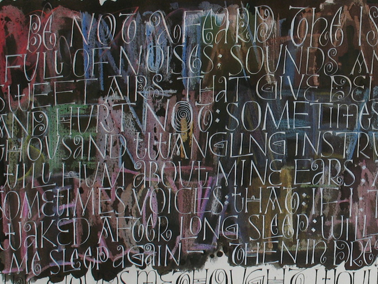 BE NOT AFEARD THE IS
FULL OF NOISES SOUNDS AN
SWEET AIRS THAT GIVE DEL
AND HURT NOT: SOMETIMES
THOUSAND TWANGLING INSTRU
WILL HUM ABOUT MINE EARS
SOMETIMES VOICES THAT
WAKED AFTER LONG SLEEP: WILL
ME SLEEP AGAIN THEN IN DREA